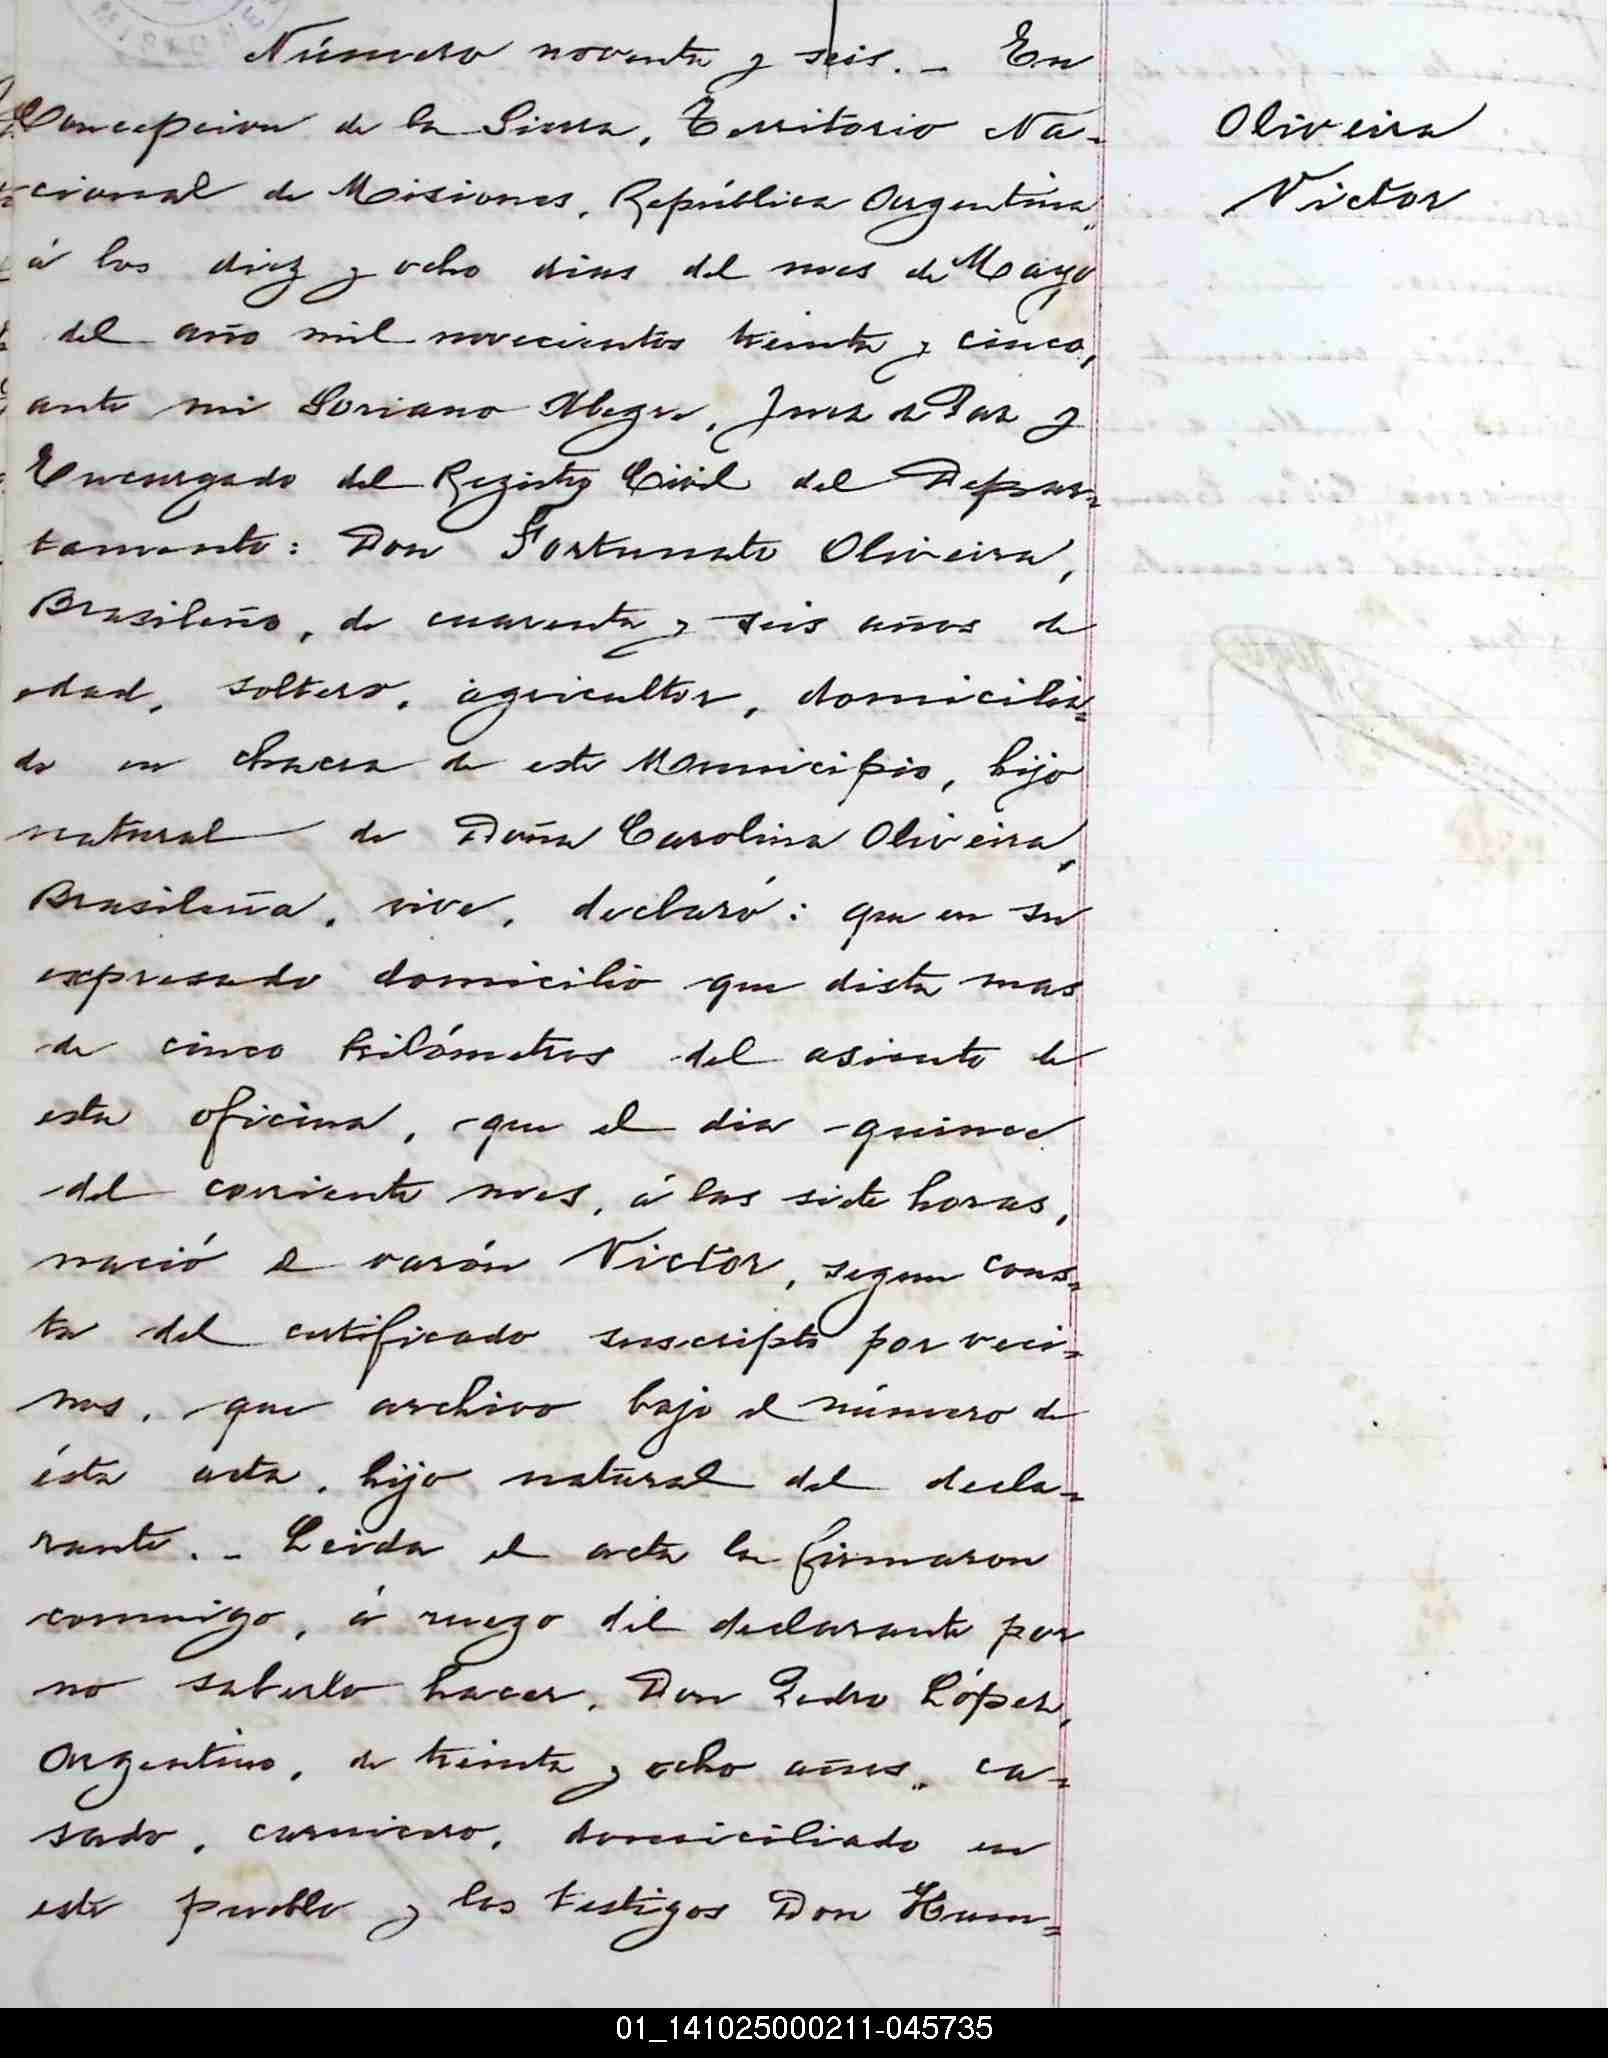 Número noventa y seis. - En
Concepcion de la Sierra, Territorio Na-
cional de Misiones, República Argentina
á los diez y ocho dias del mes de Mayo
del año mil novecientos treinta y cinco,
ante mi Soriano Alegre, Juez de Paz y
Encargado del Registro Civil del Depar-
tamento: Don Fortunato Oliveira,
Brasileño, de cuarenta y seis años de
edad, soltero, agricultor, domicilia-
do en chacra de este Municipio, hijo
natural de Doña Carolina Oliveira,
Brasileña, vive, declaró: que en su
expresado domicilio que dista mas
de cinco kilómetros del asiento de
esta oficina, que el dia quince
del corriente mes, á las siete horas,
nació el varón Victor, segun cons-
ta del certificado suscripto por veci-
nos, que archivo bajo el número de
ésta acta, hijo natural del decla-
rante. - Leida el acta la firmaron
conmigo, á ruego del declarante por
no saberlo hacer, Don Pedro López,
Argentino, de treinta y ocho años, ca-
sado, carnicero, domiciliado en
este pueblo y los testigos Don Hum-
Oliveira
Victor
01_141025000211-045735